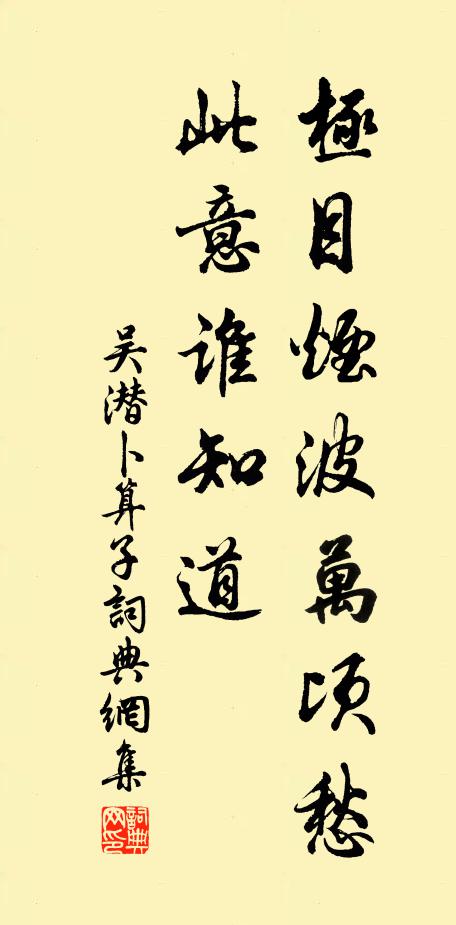 極目煙波萬頃愁
此意誰知道
吴潜卜算子詞典網集
詞典
网印